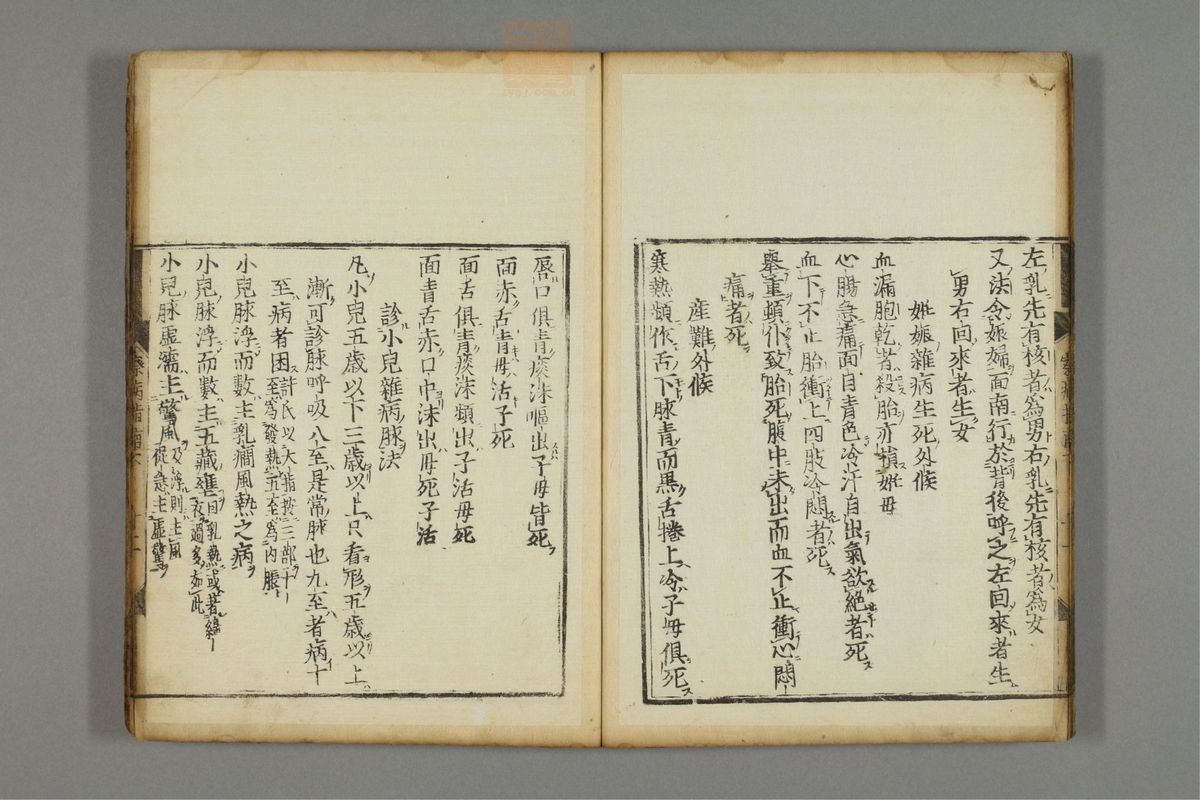 左乳先有核者為男右乳先有核者為女
又法令娠婦面南行於背後呼之左囘來者生
男右回來者生女
妊娠雜病生死外候
血漏胞乾者殺胎亦損妊母
心腸急痛面目青色冷汗自出氣欲絕者死
血下不止胎衝上四肢冷悶者死
舉重頓仆致胎死腹中未出而血不止衝心悶
痛者死
産難外候
寒熱頻作舌下脉青而黒舌捲上冷子母俱死
唇口俱青痰沫嘔出子母皆死
面赤舌青母活子死
面舌俱青痰沫頻出子活母死
面青舌赤口中沫出母死子活
診小兒雜病脉法
凡小兒五歳以下三歳以上只看形五歳以上
漸可診脉呼吸八至是常脉也九至者病十
至病者困許氏以大指按三部十至為發熱五至為内脹
小兒脉浮而數主乳癇風熱之病
小兒脉浮而數主五藏壅因乳熱或著綿衣過多如此
小兒脉虛濡主驚風及浮則主風促急主虛驚